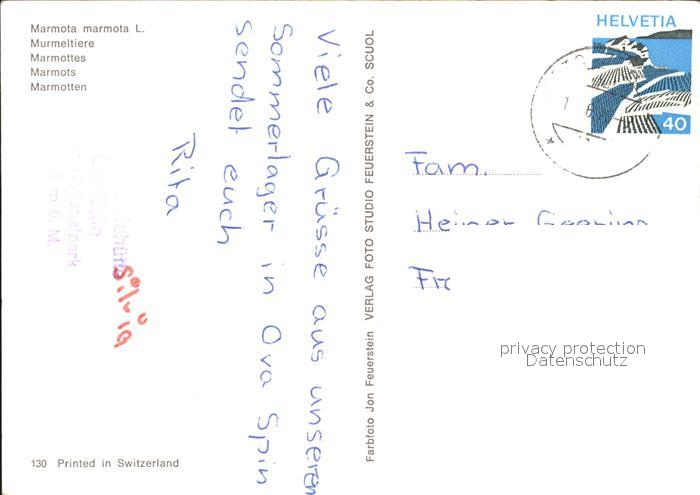 Marmota marmota L.
Murmeltiere
Marmottes
Marmots
Marmotten
Viele Grüsse aus unseren
Sommerlager in Ova Spin
sendet euch
Rita
Silvia
130 Printed in Switzerland
Farbfoto Jon Feuerstein VERLAG FOTO STUDIO FEUERSTEIN & Co. SCUOL
HELVETIA
40
Fam.
Heiner
privacy protection
Datenschutz